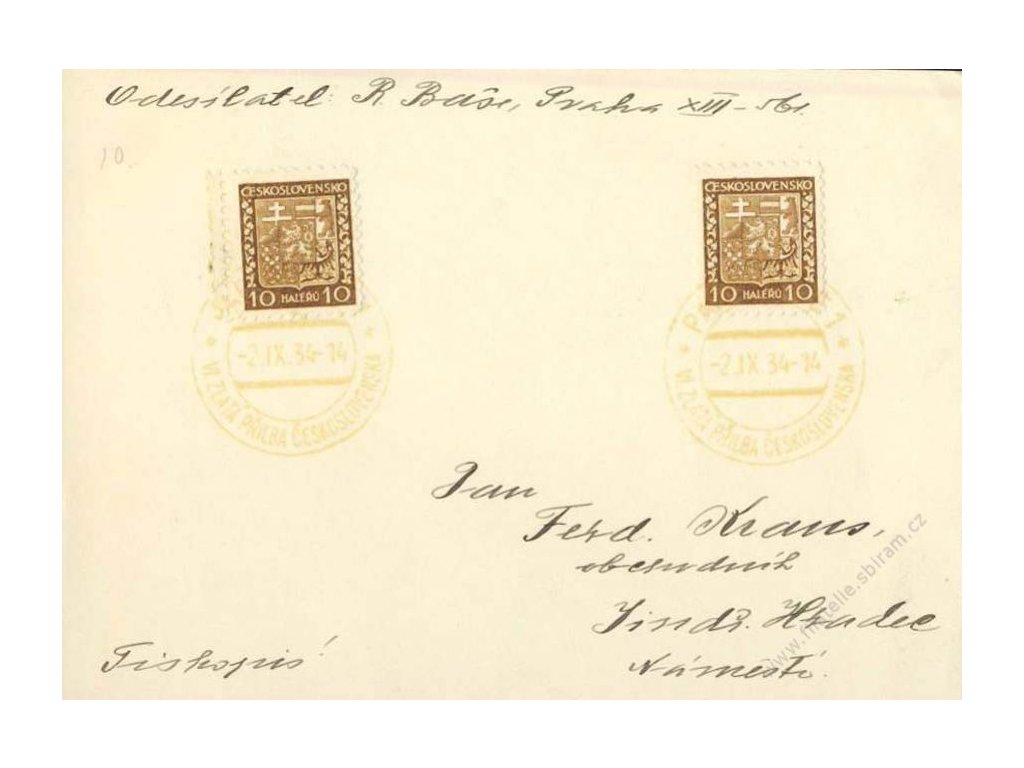 Odesílatel: R. Baše, Praha XIII - 561.
10.
ČESKOSLOVENSKO
10 HALÉŘŮ 10
ČESKOSLOVENSKO
10 HALÉŘŮ 10
-2.IX.34-14
* VI. ZLATÁ PŘILBA ČESKOSLOVENSKA *
P 1
-2.IX.34-14
* VI. ZLATÁ PŘILBA ČESKOSLOVENSKA *
Pan
Ferd. Kraus,
obchodník
Jindř. Hradec
Náměstí.
Tiskopis!
www.filatelie.sbiram.cz